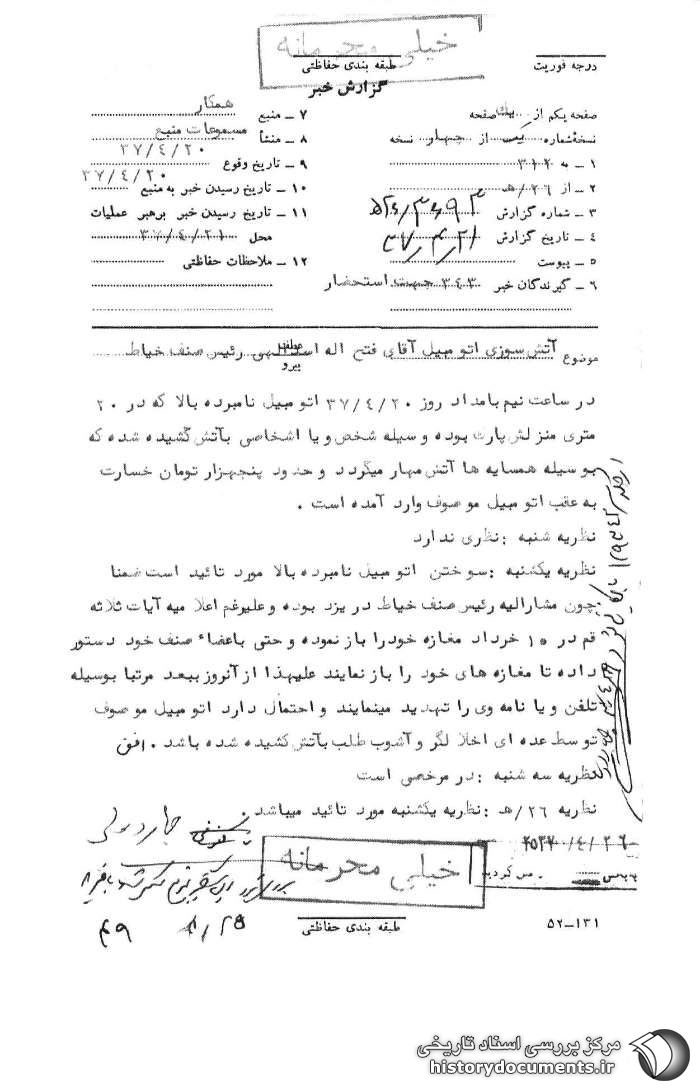 خیلی محرمانه
درجه فوریت
طبقه بندی حفاظتی
گزارش خبر
صفحه یکم از یک صفحه
نسخه‌شماره یک از چهار نسخه
۱ ـ به ۳۱۲
۲ ـ از ۲۶/هـ
۳ ـ شماره گزارش
۴ ـ تاریخ گزارش ۳۷/۴/۲۱
۵ ـ پیوست
۶ ـ گیرندگان خبر ۳۴۳ جهت استحضار
۷ ـ منبع همکار
۸ ـ منشأ مسموعات منبع
۹ ـ تاریخ وقوع ۳۷/۴/۲۰
۱۰ ـ تاریخ رسیدن خبر به منبع ۳۷/۴/۲۰
۱۱ ـ تاریخ رسیدن خبر برهبر عملیات
محل ۳۷/۴/۲۱
۱۲ ـ ملاحظات حفاظتی
موضوع آتش سوزی اتومبیل آقای فتح اله اسدالهی رئیس صنف خیاط
پیرو
در ساعت نیم بامداد روز ۳۷/۴/۲۰ اتومبیل نامبرده بالا که در ۲۰
متری منزلش پارت بوده وسیله شخص و یا اشخاصی بآتش کشیده شده که
بوسیله همسایه ها آتش مهار میگردد و حدود پنجهزار تومان خسارت
به عقب اتومبیل موصوف وارد آمده است .
نظریه شنبه : نظری ندارد
نظریه یکشنبه : سوختن اتومبیل نامبرده بالا مورد تائید است ضمنا
چون مشارالیه رئیس صنف خیاط در یزد بوده و علیرغم اعلامیه آیات ثلاثه
قم در ۱۵ خرداد مغازه خود را باز نموده و حتی باعضاء صنف خود دستور
داده تا مغازه های خود را باز نمایند علیهذا از آنروز ببعد مرتبا بوسیله
تلفن و یا نامه وی را تهدید مینمایند و احتمال دارد اتومبیل موصوف
توسط عده ای اخلالگر و آشوب طلب بآتش کشیده شده باشد . افق
نظریه سه شنبه : در مرخصی است
نظریه ۲۶/هـ : نظریه یکشنبه مورد تائید میباشد .
خیلی محرمانه
طبقه بندی حفاظتی
۵۲-۱۳۱
مرکز بررسی اسناد تاریخی
historydocuments.ir